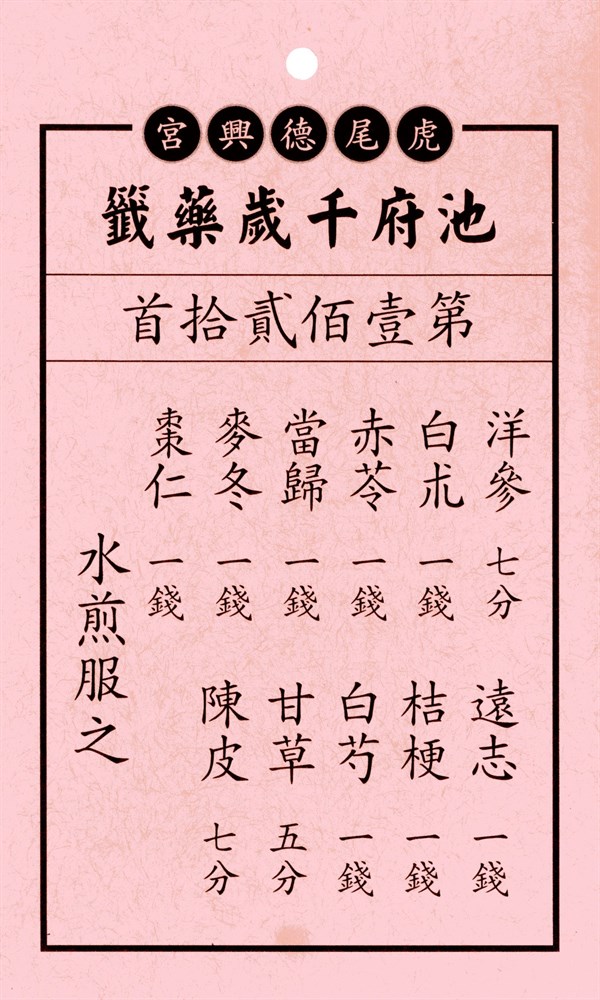 虎尾德興宮
池府千歲藥籤
第壹佰貳拾首
洋參 七分
白朮 一錢
赤苓 一錢
當歸 一錢
麥冬 一錢
棗仁 一錢
遠志 一錢
桔梗 一錢
白芍 一錢
甘草 五分
陳皮 七分
水煎服之